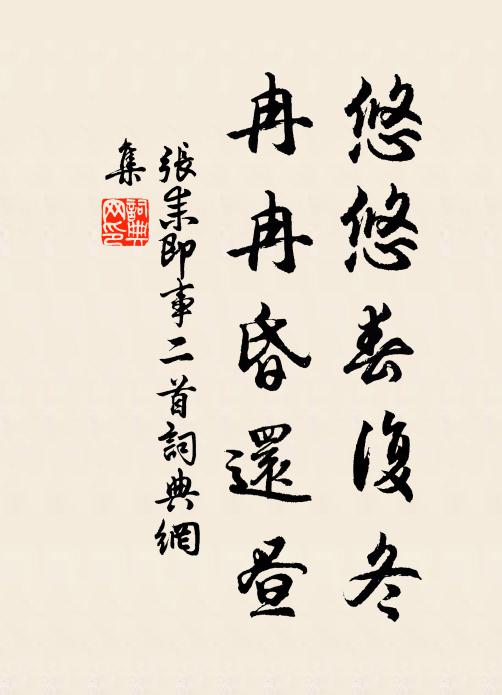 悠悠春復冬
冉冉昏還晝
張耒即事二首詞典網
集
詞典網印